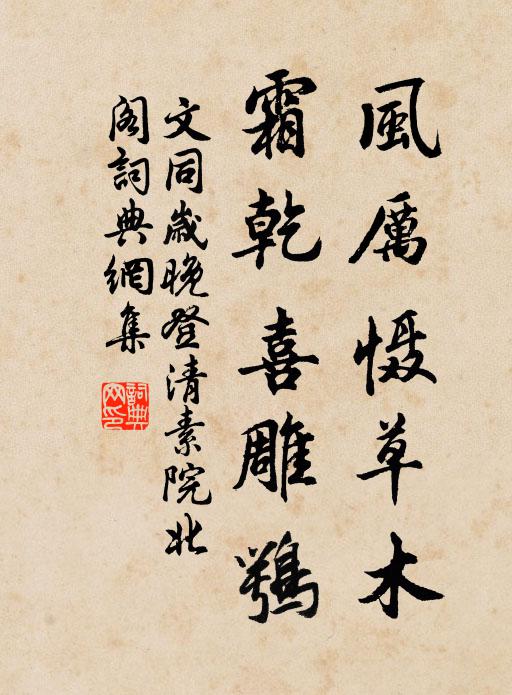 風厲慑草木
霜乾喜雕鶚
文同歲晚登清素院北
閣詞典網集
詞典
网印